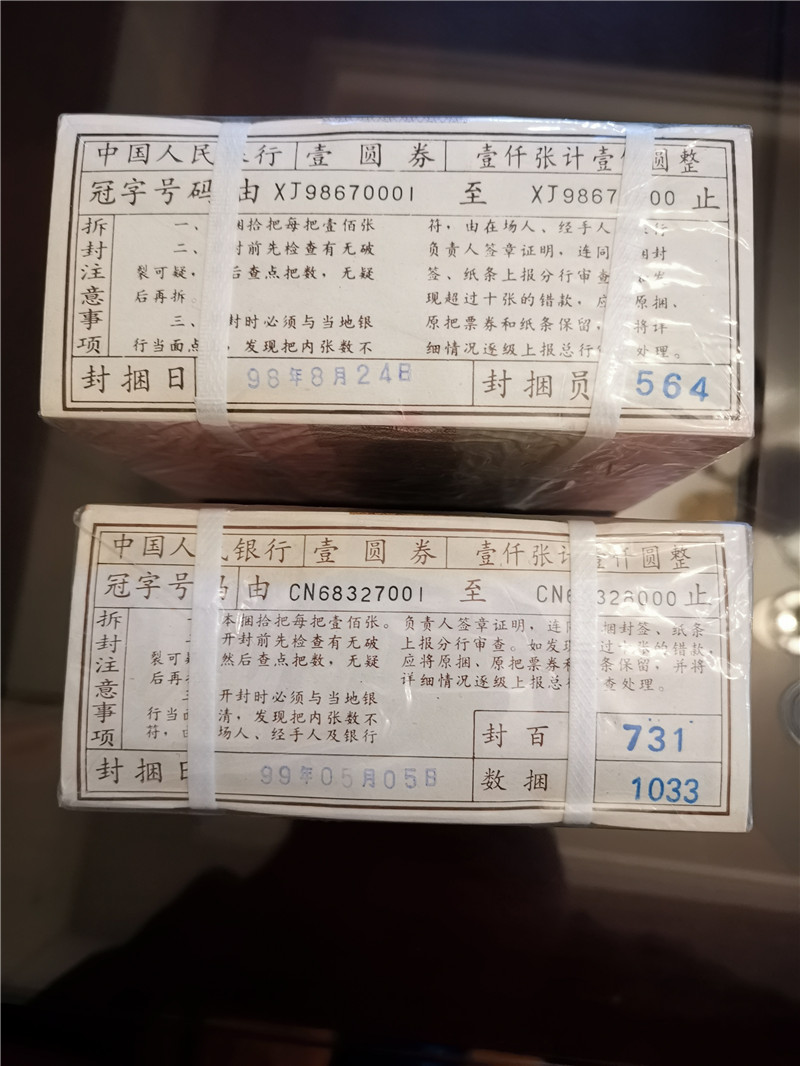 中国人民 行 壹圆券 壹仟张计壹 圆整
冠字号码 由 XJ98670001 至 XJ9867 00 止
拆封注意事项
一、 捆拾把每把壹佰张
二、 封前先检查有无破
裂可疑， 后查点把数，无疑
后再拆。
三、 封时必须与当地银
行当面点 ，发现把内张数不
符，由在场人、经手人 行
负责人签章证明，连同 捆封
签、纸条上报分行审查 发
现超过十张的错款，应 原捆、
原把票券和纸条保留， 将详
细情况逐级上报总行 处理。
封捆日 98年8月24日 封捆员 564
中国人民银行 壹圆券 壹仟张计壹仟圆整
冠字号码 由 CN68327001 至 CN6 328000 止
拆封注意事项
一 本捆拾把每把壹佰张。
二 开封前先检查有无破
裂可 然后查点把数，无疑
后再
三 开封时必须与当地银
行当面 清，发现把内张数不
符，由 场人、经手人及银行
负责人签章证明，连 捆封签、纸条
上报分行审查。如发现 过十张的错款，
应将原捆、原把票券和 条保留，并将
详细情况逐级上报总 查处理。
封百 731
封捆日 99年05月05日 数捆 1033